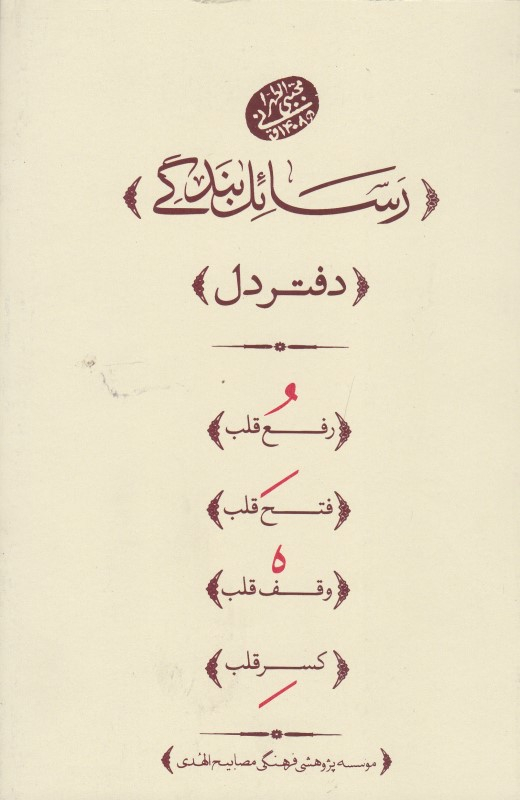 مجتبی الطهرانی
۱۴۰۸ق
رسائل بندگی
دفتر دل
رفعُ قلب
فتحَ قلب
وقفْ قلب
کسرِ قلب
موسسه پژوهشی فرهنگی مصابیح الهُدی